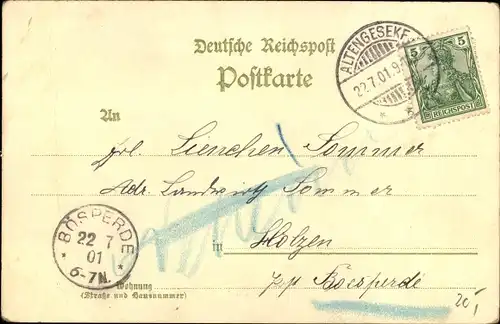 Deutsche Reichspost
Postkarte
ALTENGESEKE
22.7.01.9
5 5
REICHSPOST
An
Frl. Lienchen Sommer
Adr. Landwirth Sommer
in Holzen
p/p Boesperde
BÖSPERDE
22 7
01
6-7N.
Wohnung
(Straße und Hausnummer)
20,-